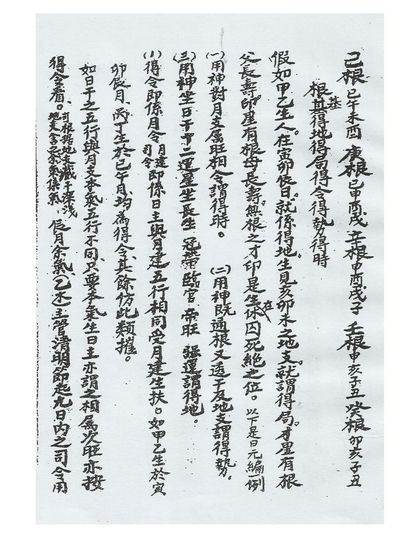 己根 巳午未酉 庚根 巳申酉戌 辛根 申酉戌子 壬根 申亥子丑 癸根 卯亥子丑
根基 得地得局得令得執得時
假如甲乙生人。在寅卯依日。就係得地。生見亥卯未之地支。就謂得局。才星有根
父長壽。印星有根母長壽。無根之才印是生在休囚死絕之位。以下是日元編一例
(一)用神對月支属旺相令謂得時。 (二)用神既通根又透干及地支謂得勢。
(三)用神生日干十二運星生長生 冠帶 臨官 帝旺 強運謂得地。
(1)得令即係月令月建司令即係日主與月建五行相同受月建生扶。如甲乙生於寅
卯辰月、丙丁生於巳午月、均為得令其餘仿此類推。
如日干之五行與月支本氣五行不同、只要本氣生日主亦謂之相属次旺亦按
得令看。司根得地支藏干深淺 地支含余氣條氣、辰月余氣(乙木)主管清明節起九日內之司令用